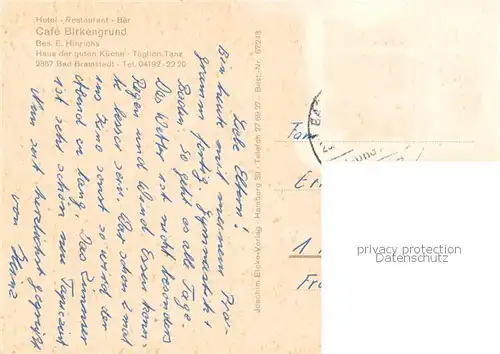 Hotel - Restaurant - Bar
Café Birkengrund
Bes. E. Hinrichs
Haus der guten Küche - Täglich Tanz
2357 Bad Bramstedt - Tel. 04192-2220
Joachim Eicke-Verlag, Hamburg 39 - Telefon 27 69 27 - Best.-Nr. 67243
Liebe Eltern!
Bin heute mit meinem Pro-
gramm fertig. Gymnastik +
Baden; so geht es alle Tage.
Das Wetter ist nicht besonders
Regen und Wind. Essen könn-
te besser sein. War schon 2 mal
ins Kino sonst so wird der
Abend zu lang. Das Zimmer
ist sehr schön neu Tapeziert
Nun seit herzlichst gegrüßt
von Heinz
Fam
1
privacy protection
Datenschutz